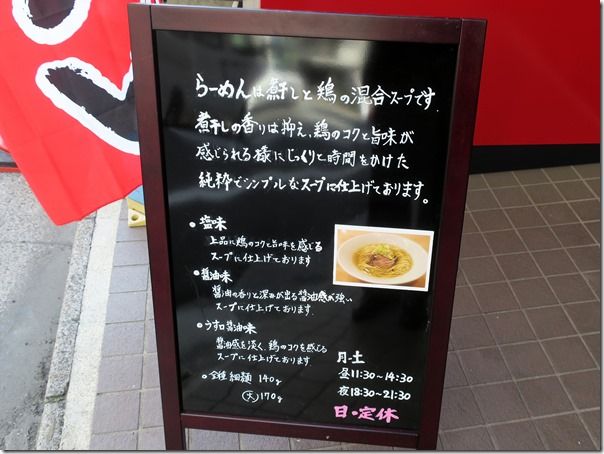 らーめんは煮干しと鶏の混合スープです.
煮干しの香りは抑え、鶏のコクと旨味が
感じられる様にじっくりと時間をかけた
純粋でシンプルなスープに仕上げております。
•塩味
上品に鶏のコクと旨味を感じる
スープに仕上げております
•醤油味
醤油の香りと深みが出る醤油感が強い
スープに仕上げております.
•うす口醤油味
醤油感を淡く、鶏のコクを感じる
スープに仕上げております.
•全種細麺 140g
大 170g
月-土
昼11:30~14:30
夜18:30~21:30
日•定休